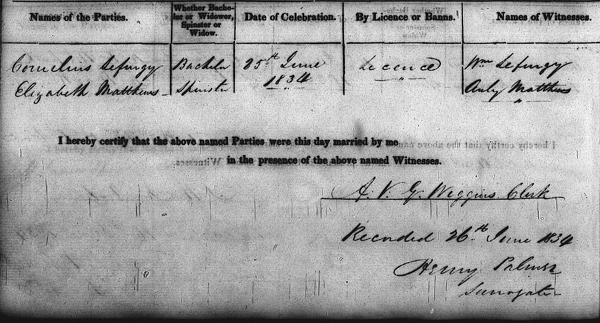 Names of the Parties. Whether Bachelor or Widower, Spinster or Widow. Date of Celebration. By Licence or Banns. Names of Witnesses.
Cornelius Lefurgy Bachelor 25th June Licence Wm Lefurgy
Elizabeth Matthews Spinster 1834 Matthews
I hereby certify that the above named Parties were this day married by me
in the presence of the above named Witnesses.
A. V. G. Wiggins Clerk
Recorded 26th June 1834
Henry Palmer
Surrogate